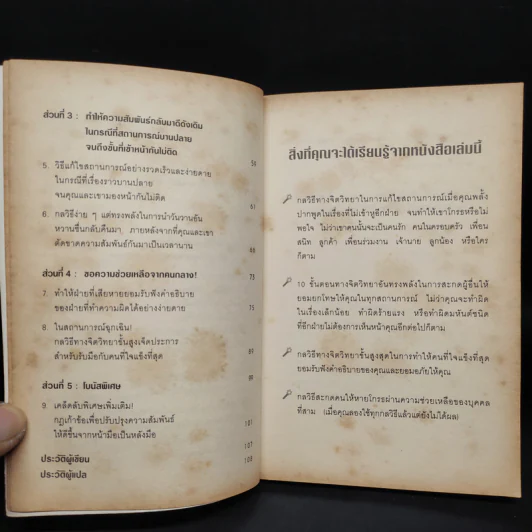 ส่วนที่ 3 : ทำให้ความสัมพันธ์กลับมาดีดังเดิม
ในกรณีที่สถานการณ์บานปลาย
จนถึงขั้นที่เข้าหน้ากันไม่ติด
5. วิธีแก้ไขสถานการณ์อย่างรวดเร็วและง่ายดาย 54
ในกรณีที่เรื่องราวบานปลาย
จนคุณและเขามองหน้ากันไม่ติด 61
6. กลวิธีง่าย ๆ แต่ทรงพลังในการนำวันวานอัน
หวานชื่นกลับคืนมา ภายหลังจากที่คุณและเขา
ตัดขาดความสัมพันธ์กันมาเป็นเวลานาน 66
ส่วนที่ 4 : ขอความช่วยเหลือจากคนกลาง! 73
7. ทำให้ฝ่ายที่เสียหายยอมรับฟังคำอธิบาย
ของฝ่ายที่ทำความผิดได้อย่างง่ายดาย 75
8. ในสถานการณ์ฉุกเฉิน!
กลวิธีทางจิตวิทยาขั้นสูงเจ็ดประการ
สำหรับรับมือกับคนที่ใจแข็งที่สุด 89
ส่วนที่ 5 : โบนัสพิเศษ
9. เคล็ดลับพิเศษเพิ่มเติม!
กฎเก้าข้อเพื่อปรับปรุงความสัมพันธ์
ให้ดีขึ้นจากหน้ามือเป็นหลังมือ 101
ประวัติผู้เขียน 107
ประวัติผู้แปล 108
สิ่งที่คุณจะได้เรียนรู้จากหนังสือเล่มนี้
กลวิธีทางจิตวิทยาในการแก้ไขสถานการณ์เมื่อคุณพลั้ง
ปากพูดในเรื่องที่ไม่เข้าหูอีกฝ่าย จนทำให้เขาโกรธหรือไม่
พอใจ ไม่ว่าเขาคนนั้นจะเป็นคนรัก คนในครอบครัว เพื่อน
สนิท ลูกค้า เพื่อนร่วมงาน เจ้านาย ลูกน้อง หรือใคร
ก็ตาม
10 ขั้นตอนทางจิตวิทยาอันทรงพลังในการสะกดผู้อื่นให้
ยอมยกโทษให้คุณในทุกสถานการณ์ ไม่ว่าคุณจะทำผิด
ในเรื่องเล็กน้อย ทำผิดร้ายแรง หรือทำผิดมหันต์ชนิด
ที่อีกฝ่ายไม่ต้องการเห็นหน้าคุณอีกต่อไปก็ตาม
กลวิธีทางจิตวิทยาขั้นสูงสุดในการทำให้คนที่ใจแข็งที่สุด
ยอมรับฟังคำอธิบายของคุณและยอมอภัยให้คุณ
กลวิธีสะกดคนให้หายโกรธผ่านความช่วยเหลือของบุคคล
ที่สาม (เมื่อคุณลองใช้ทุกกลวิธีแล้วแต่ยังไม่ได้ผล)